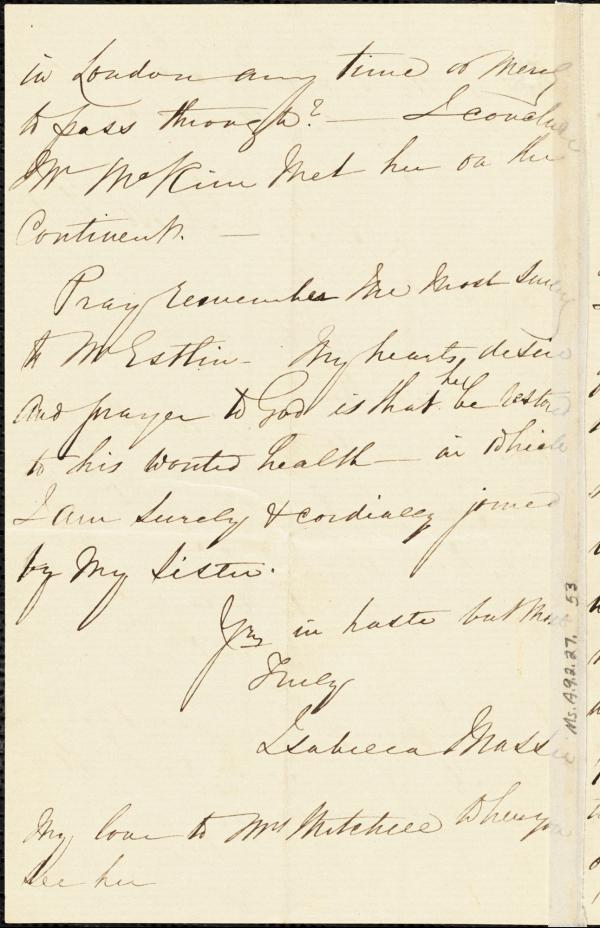 in London any time or merely
to pass through? — I conclude
Mr McKim met her on the
Continent. —
Pray remember me most
to Mr Estlin - My hearts desire
and prayer to God is that he be restored
to his wonted health — in which
I am surely & cordially joined
by my sister.
Yrs in haste but most
Truly
Isabella Massie
My love to Mrs Mitchell when you
see her
Ms. A.9.2.27. 53